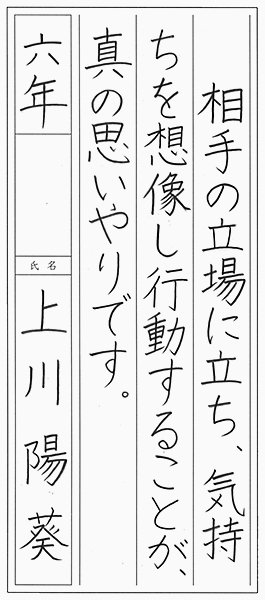 相手の立場に立ち、気持
ちを想像し行動することが、
真の思いやりです。
六年
氏名
上川陽葵